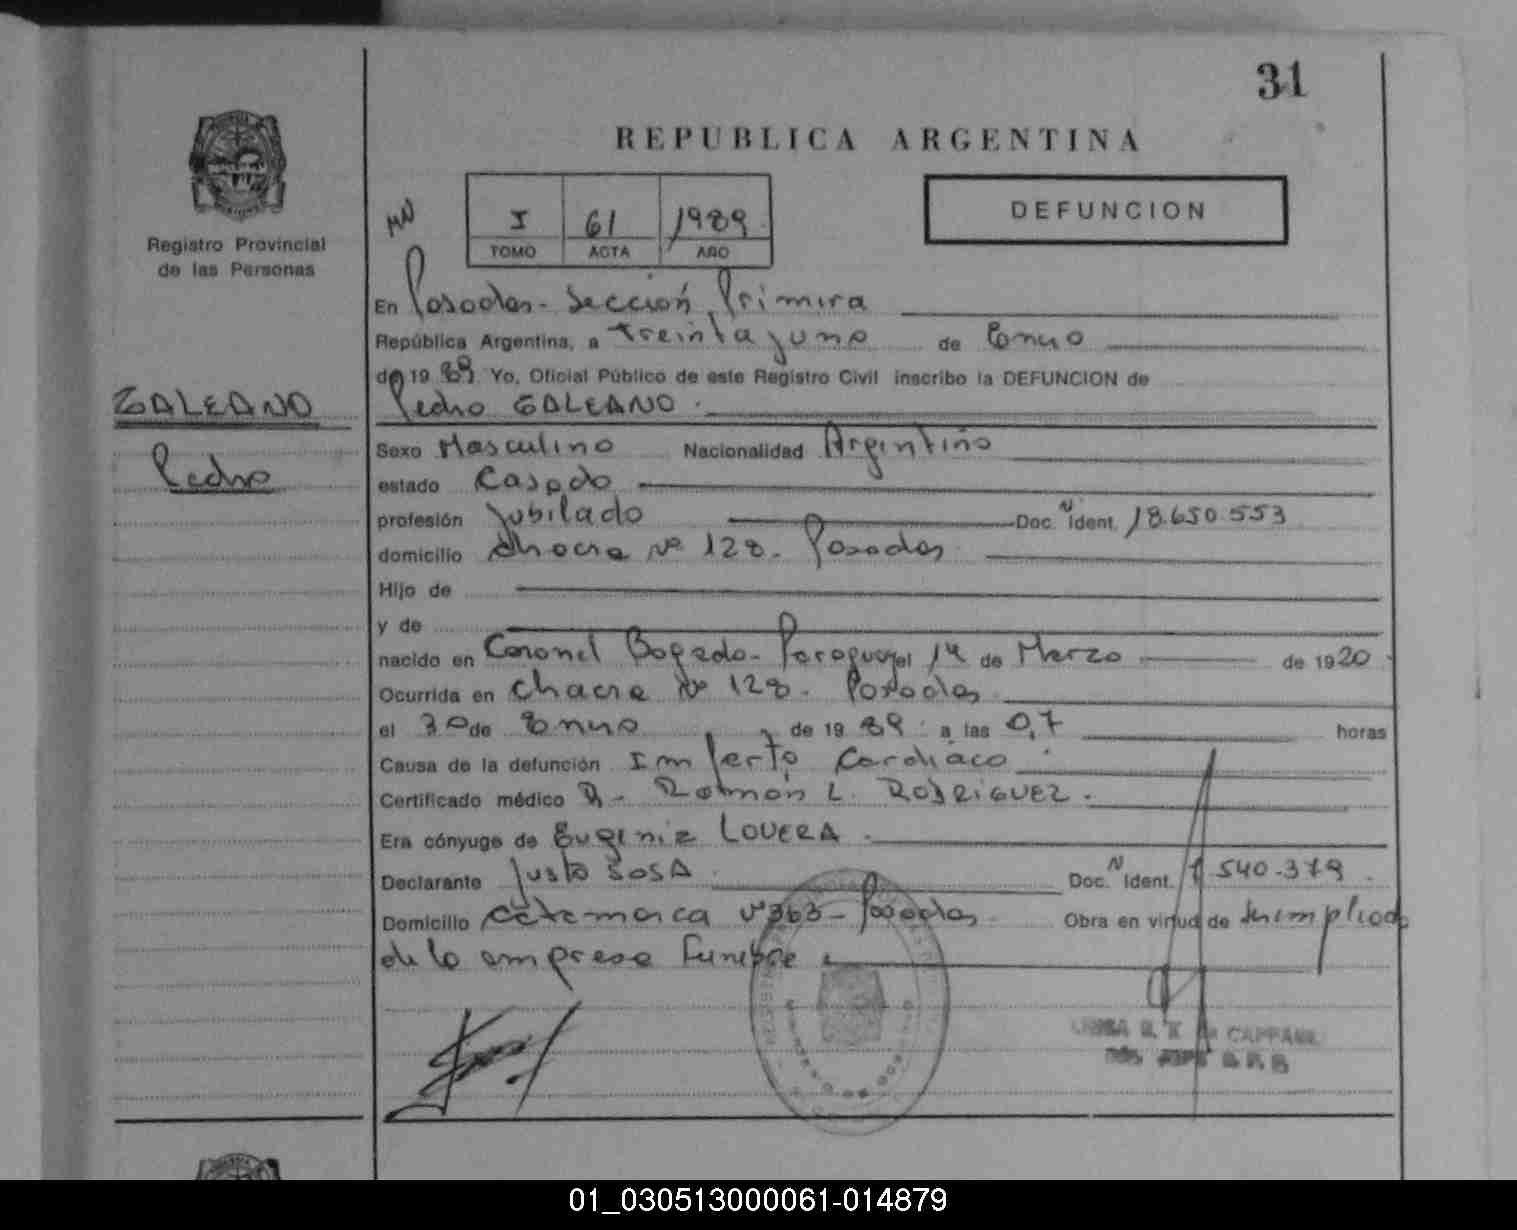 31
REPUBLICA ARGENTINA
Registro Provincial
de las Personas
I 61 1989
TOMO ACTA AÑO
DEFUNCION
En Posadas - Sección Primera
República Argentina, a treinta y uno de Enero
de 19 89. Yo, Oficial Público de este Registro Civil inscribo la DEFUNCION de
GALEANO
Pedro
Pedro GALEANO.
Sexo Masculino Nacionalidad Argentino
estado Casado
profesión Jubilado Doc. N Ident. 18.650.553
domicilio Chacra Nº 128. Posadas
Hijo de
y de
nacido en Coronel Bogado - Paraguay el 14 de Marzo de 1920
Ocurrida en Chacra Nº 128. Posadas
el 30 de Enero de 19 89 a las 0,7 horas
Causa de la defunción Imferto Cardíaco
Certificado médico Dr. Ramón L. RODRIGUEZ.
Era cónyuge de Eugenia LOVERA.
Declarante Justo SOSA Doc. N Ident. 540.379
Domicilio Catamarca Nº 363 - Posadas Obra en virtud de ser empleado
de la empresa Funebre
01_030513000061-014879